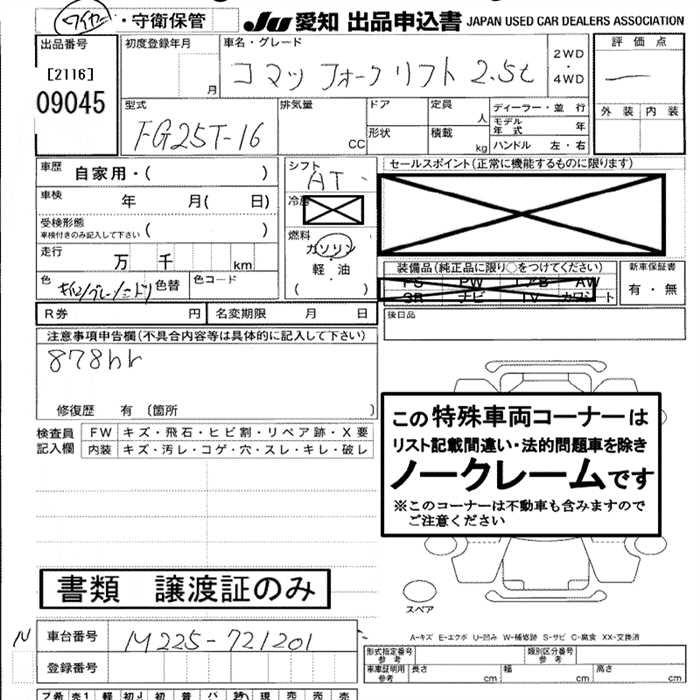 ワイヤー・守衛保管
JU 愛知 出品申込書 JAPAN USED CAR DEALERS ASSOCIATION
出品番号
[2116]
09045
初度登録年月
月
車名・グレード
コマツ フォークリフト 2.5t
2WD
・
4WD
評価点
外装 内装
型式
FG25T-16
排気量
CC
ドア
形状
定員
人
積載
kg
ディーラー・並行
モデル年式 年
ハンドル 左・右
車歴
自家用・( )
車検
年 月( 日)
受検形態
車検付きのみ記入して下さい ( )
走行
万 千 km
色
色替
色コード
シフト
AT
冷房
燃料
ガソリン
・
軽・油
( )
セールスポイント(正常に機能するものに限ります)
装備品(純正品に限り○をつけてください)
PS PW エアB AW
SR ナビ TV カワシート
新車保証書
有・無
R券 円
名変期限 月 日
後日品
注意事項申告欄(不具合内容等は具体的に記入して下さい)
878hr
修復歴 有 〔箇所 〕
検査員記入欄
FW キズ・飛石・ヒビ割・リペア跡・X要
内装 キズ・汚レ・コゲ・穴・スレ・キレ・破レ
この特殊車両コーナーは
リスト記載間違い・法的問題車を除き
ノークレームです
※このコーナーは不動車も含みますので
ご注意ください
書類 譲渡証のみ
スペア
A-キズ E-エクボ U-凹み W-補修跡 S-サビ C-腐食 XX-交換済
N 車台番号
M225-721201
登録番号
形式指定番号
参考
類別区分番号
参考
車庫証明用
参考
長さ cm
幅 cm
高さ cm